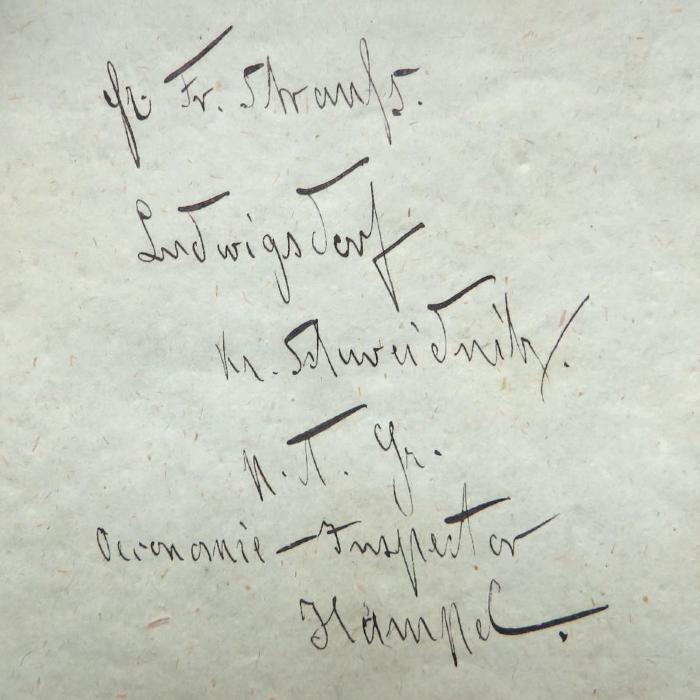 Fr. Strauß.
Ludwigsdorf
Kr. Schweidnitz.
N. N. Gr.
Oeconomie-Inspector
Hampel.